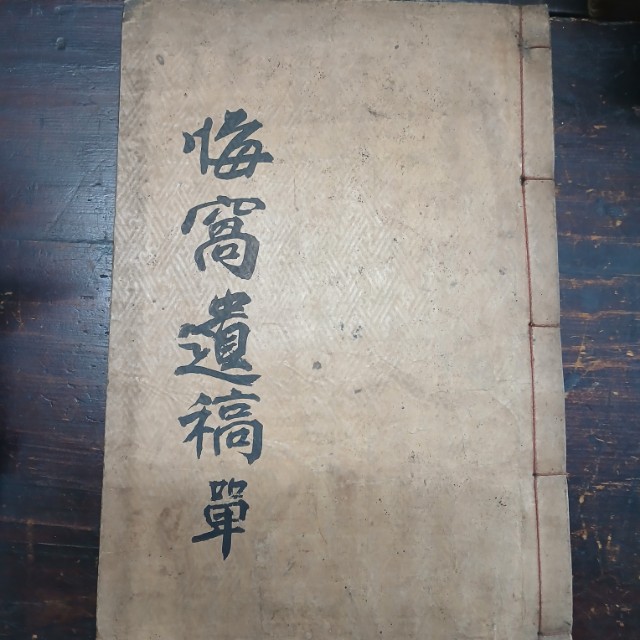 悔窩遺稿單